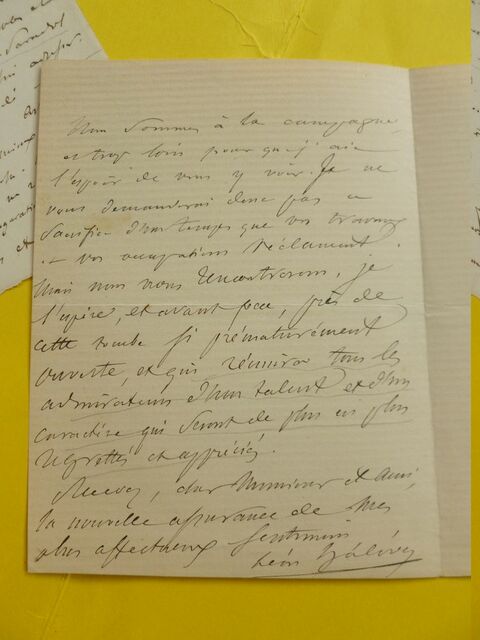 Nous sommes à la campagne,
et trop loin pour que j'aie
l'espoir de vous y voir. Je ne
vous demanderai donc pas ce
sacrifice d'un temps que vos travaux
et vos occupations réclament.
Mais nous nous rencontrerons, je
l'espère, et avant peu, près de
cette tombe si prématurément
ouverte, et qui réunira tous les
admirateurs d'un talent et d'un
caractère qui seront de plus en plus
regrettés et appréciés.
Recevez, cher Monsieur et ami,
la nouvelle assurance de mes
plus affectueux sentiments
Léon Halévy